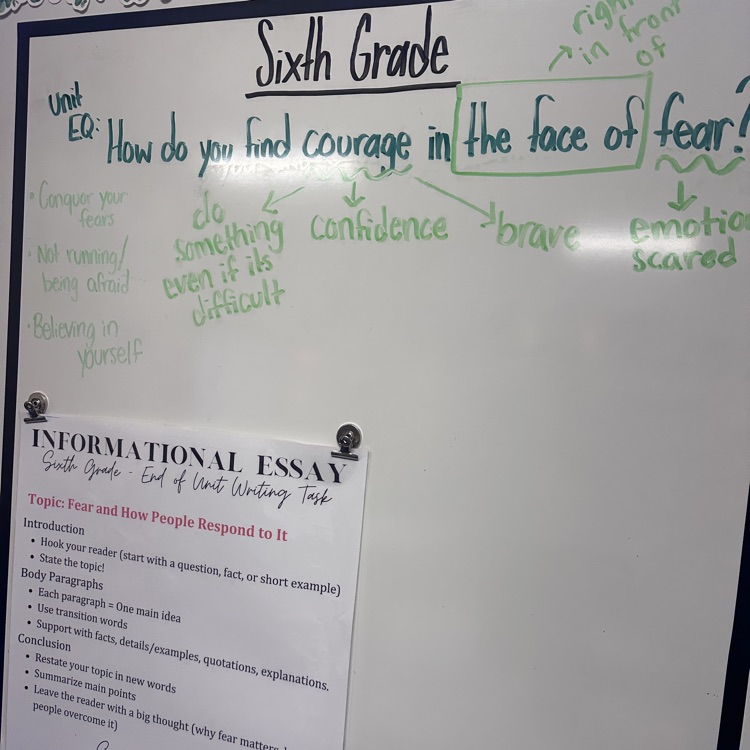 Sixth Grade
right
in front
of
Unit
EQ: How do you find courage in the face of fear?
• Conquor your
fears
• Not running/
being afraid
• Believing in
yourself
do
something
even if its
difficult
confidence
brave
emotio
scared
INFORMATIONAL ESSAY
Sixth Grade - End of Unit Writing Task
Topic: Fear and How People Respond to It
Introduction
• Hook your reader (start with a question, fact, or short example)
• State the topic!
Body Paragraphs
• Each paragraph = One main idea
• Use transition words
• Support with facts, details/examples, quotations, explanations.
Conclusion
• Restate your topic in new words
• Summarize main points
• Leave the reader with a big thought (why fear matters,
people overcome it)